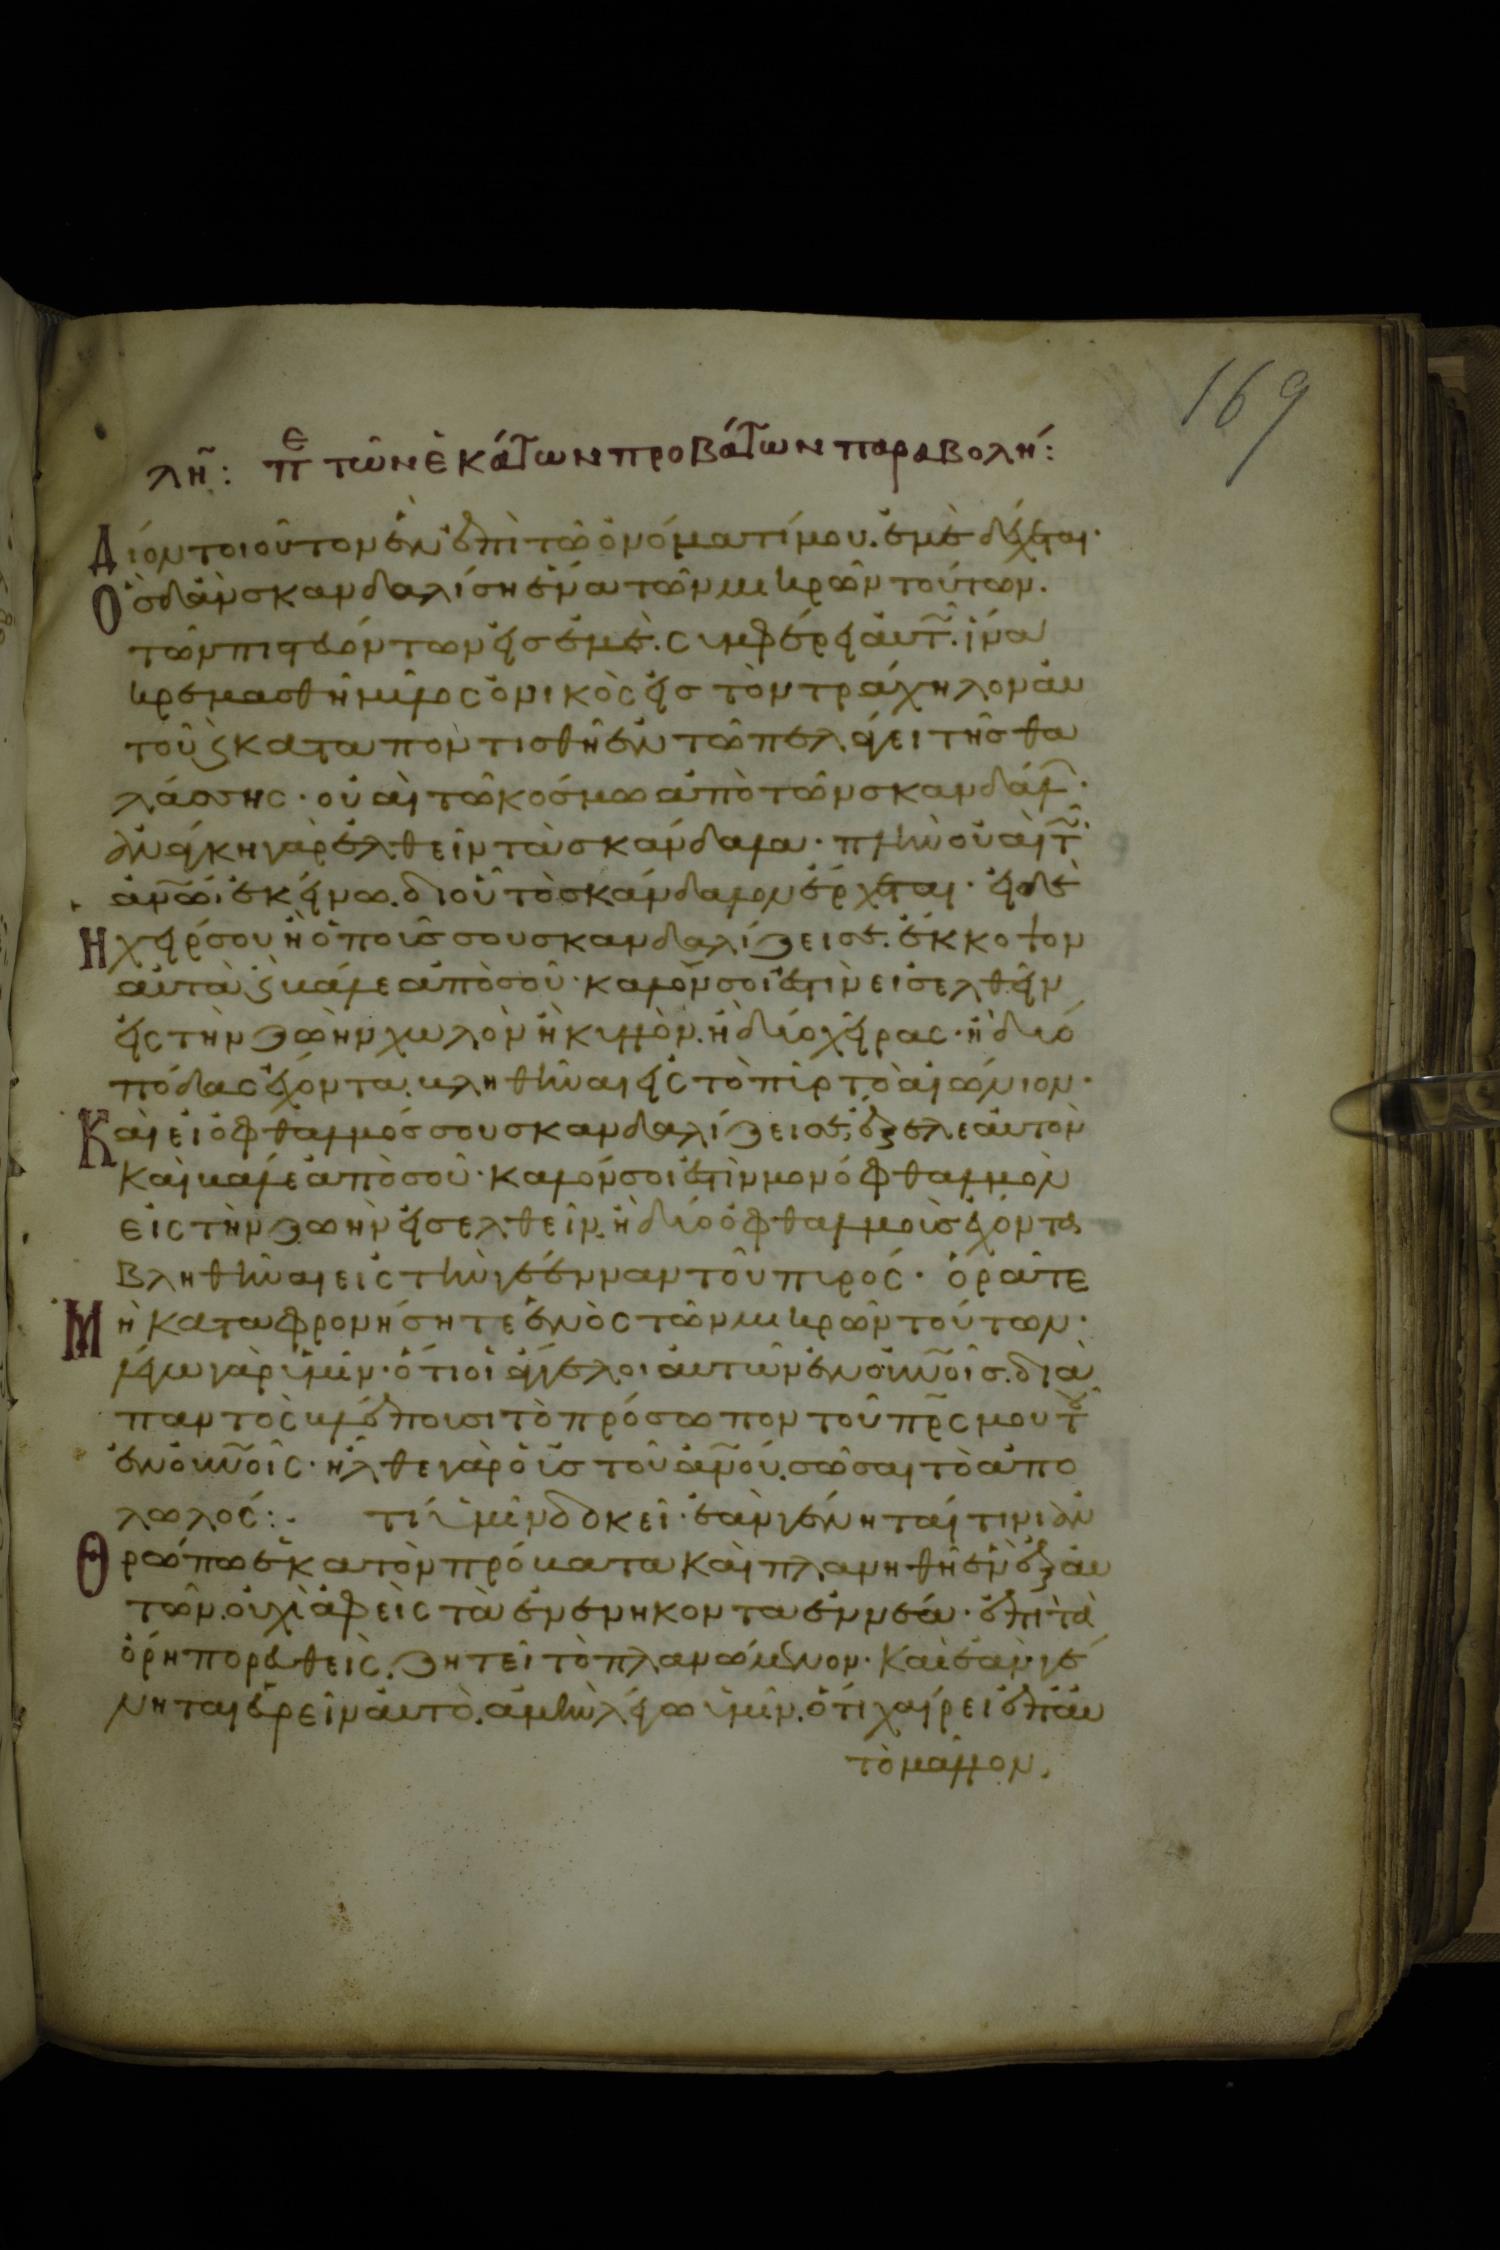 169
λη: πε τῶν ἑκάτων προβάτων παραβολή:
Δίον τοιοῦτον ἓν ἐπὶ τῶ ὀνόματί μου. ἐμὲ δέχεται·
Ὃσ δἂν σκανδαλίση ἕνα τῶν μικρῶν τούτων.
τῶν πιστευόντων εἰσ ἐμέ. συμφέρει αυτ. ἵνα
κρεμασθῆ μύλος ὀνικὸς εἰσ τὸν τράχηλον αὐ
τοῦ ϛ καταποντισθῆ ἐν τῶ πελάγει τῆσ θα
λάσσης· οὐαὶ τῶ κόσμω ἀπὸ τῶν σκανδάλ·
ἀνάγκη γὰρ ἐλθεῖν τὰ σκάνδαλα· πλὴν οὐαὶ τ
ἀνῶ ἐκείνω. δι οὗ τὸ σκάνδαλον ἔρχεται· εἰ δὲ
Ἡ χείρ σου ἢ ὁ ποῦσ σου σκανδαλίζει σε. ἔκκοψον
αὐτὰ ϛ βάλε ἀπὸ σοῦ· καλόν σοι ἐστὶν εἰσελθεῖν
εἰς τὴν ζωὴν χωλὸν ἢ κυλλὸν. ἢ δύο χεῖρας· ἢ δύο
πόδας ἔχοντα. βληθῆναι εἰς τὸ πῦρ τὸ αἰώνιον·
Καὶ εἰ ὀφθαλμόσ σου σκανδαλίζει σε, ἔξελε αὐτὸν
καὶ βάλε ἀπὸ σοῦ· καλόν σοι ἐστὶν μονόφθαλμον
εἰς τὴν ζωὴν εἰσελθεῖν. ἢ δύο ὀφθαλμοὺσ ἔχοντα
βληθῆναι εἰς τὴν γέενναν τοῦ πυρός· ὁρᾶτε
Μὴ καταφρονήσητε ἑνὸς τῶν μικρῶν τούτων·
λέγω γὰρ ὑμῖν· ὅτι οἱ ἄγγελοι αὐτῶν ἐν οὐνοῖσ. διὰ
παντὸς βλέπουσι τὸ πρόσωπον τοῦ πρς μου τοῦ
ἐν οὐνοῖς· ἦλθε γὰρ ὁ υσ τοῦ ἀνού. σῶσαι τὸ ἀπο
λωλός:. τί ὑμῖν δοκεῖ· ἐὰν γένηταί τινι ἀν
Θρώπω ἑκατὸν πρόβατα καὶ πλανηθῆ ἓν ἐξ αὐ
τῶν. οὐχὶ ἀφεὶς τὰ ἐνενηκονταεννέα· ἐπὶ τὰ
ὄρη πορευθεὶς. ζητεῖ τὸ πλανώμενον· Καὶ ἐὰν γέ
νηται εὑρεῖν αὐτὸ. ἀμὴν λέγω ὑμῖν. ὅτι χαίρει ἐπ αὐ
τὸ μᾶλλον.